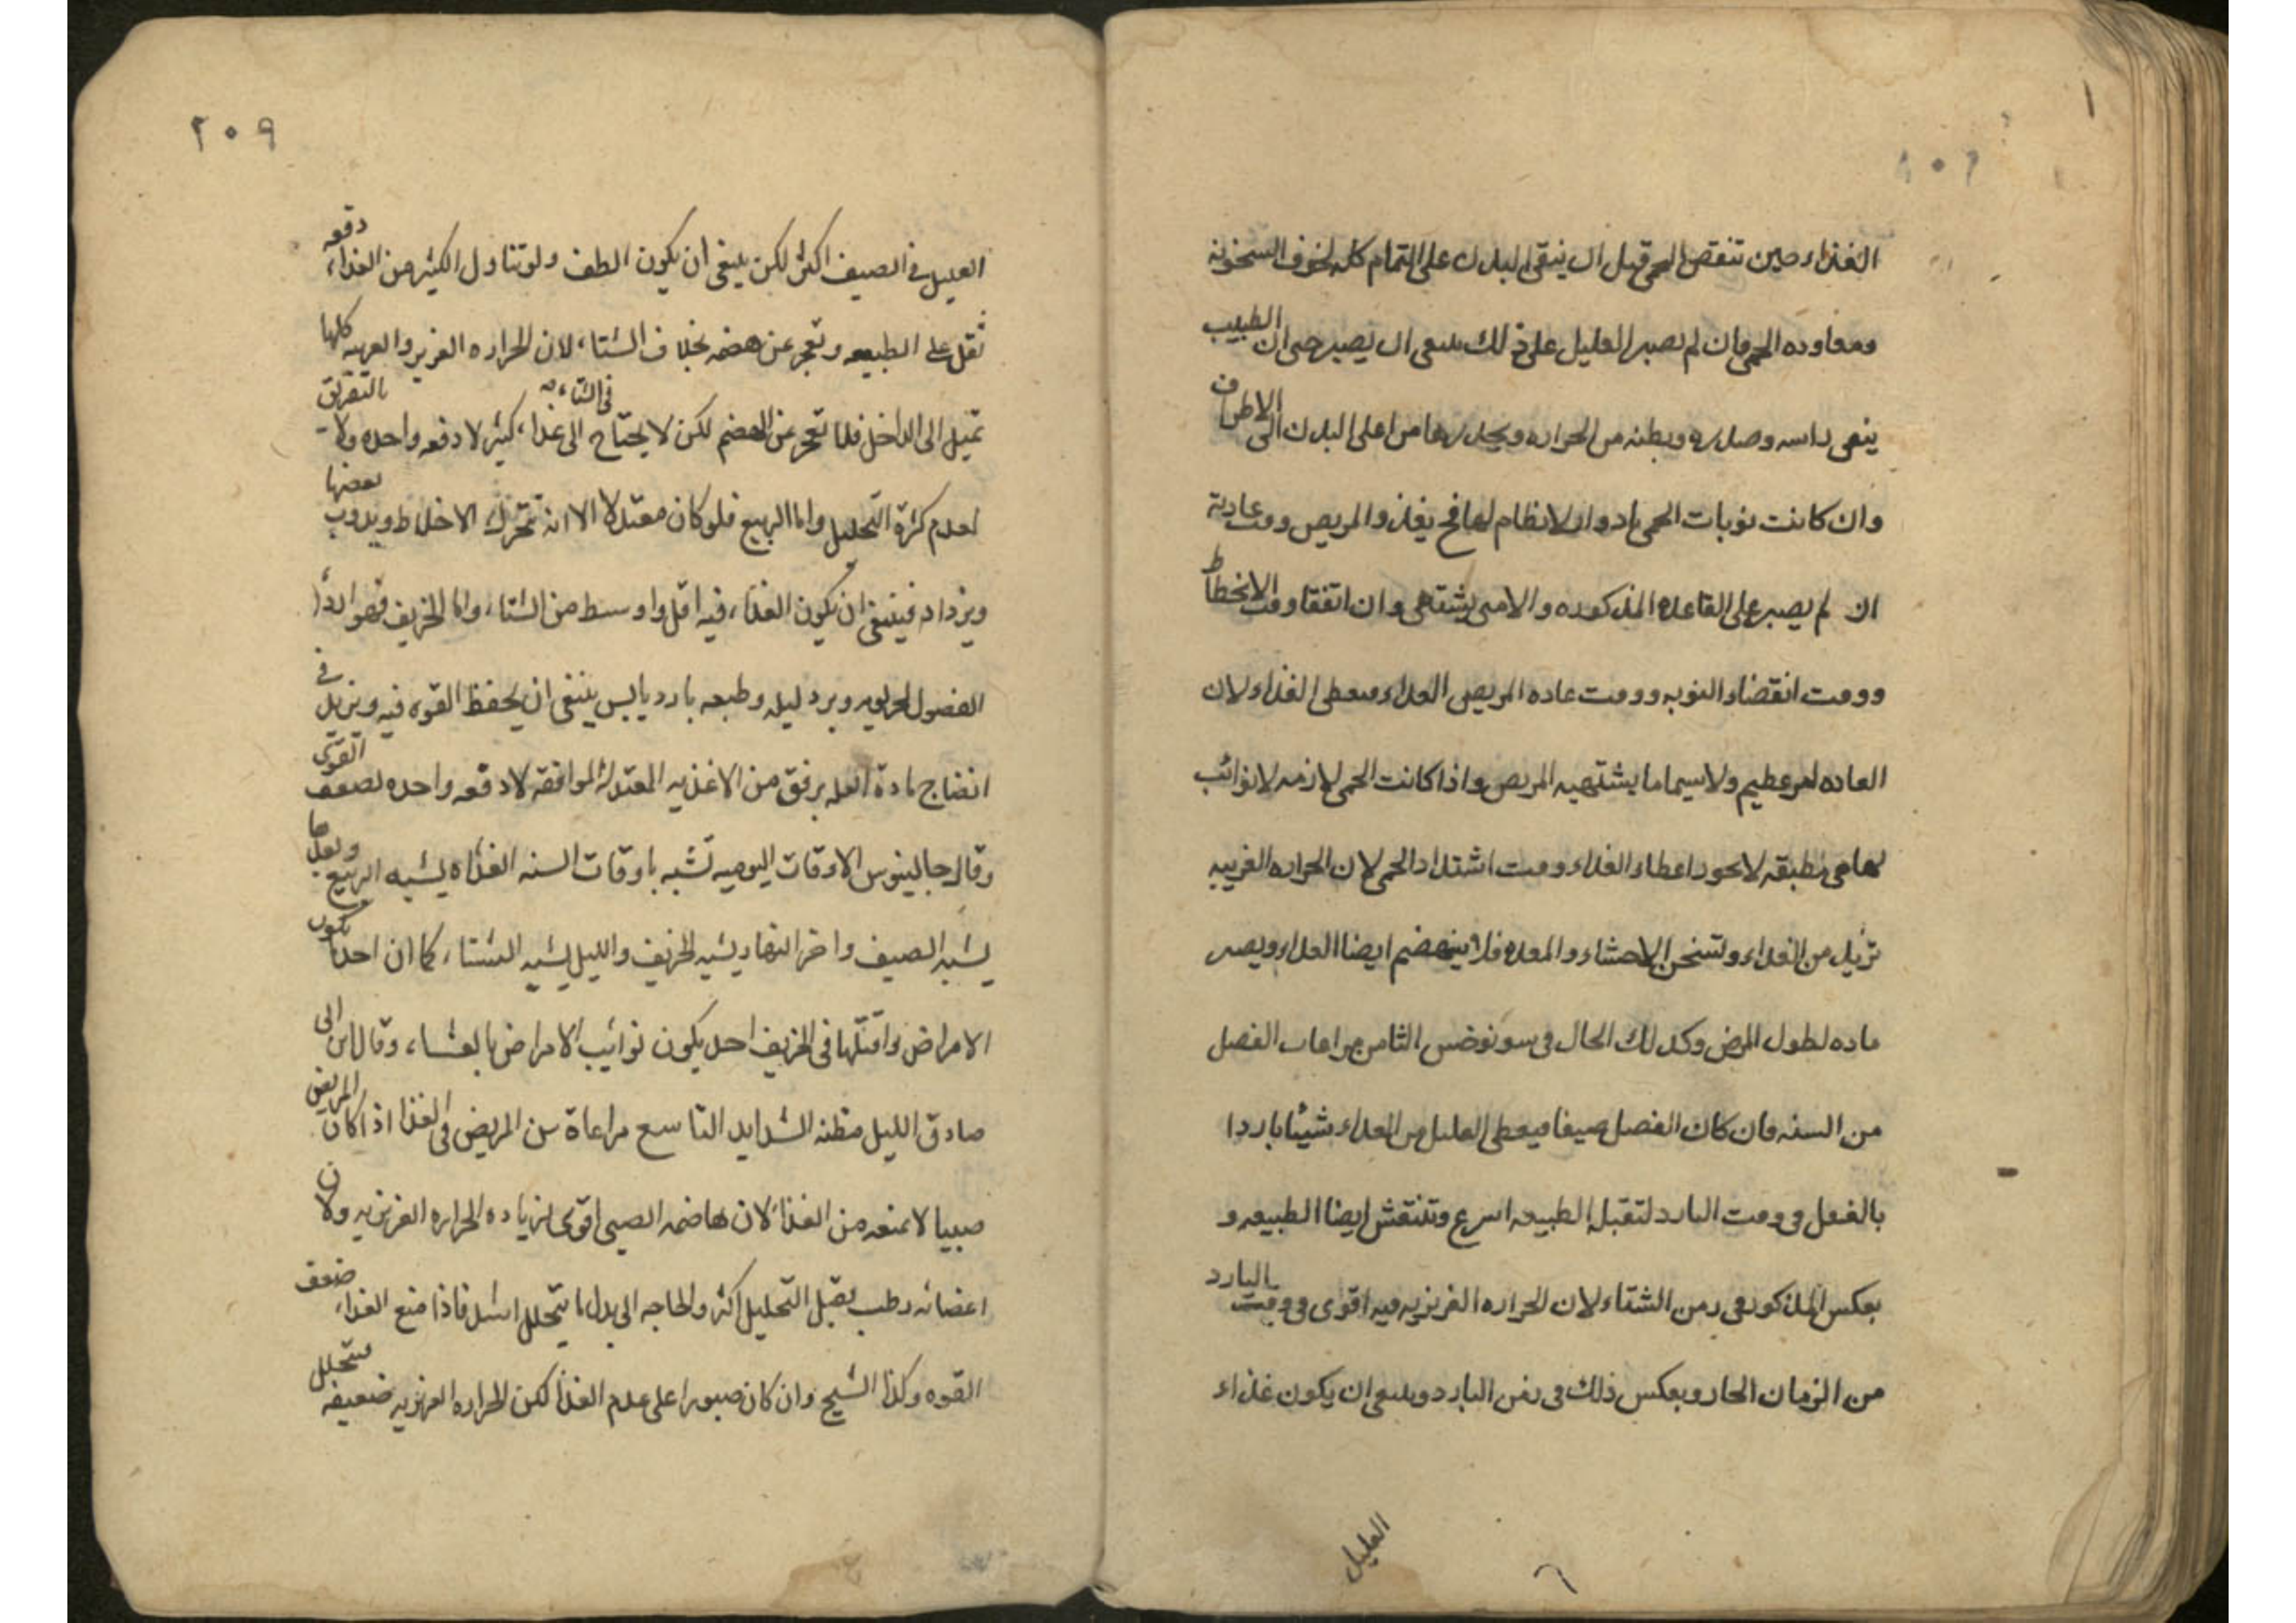 الغذاء حين تنقص الحمى قبل ان ينقى البدن على التمام كله لخوف السخونة
ومعاوده الحمى فان لم يصبر العليل على ذلك ينبغى ان يصبر حتى ان الطبيب
ينقى راسه وصدره وبطنه من الحراره ويحدرها من اعلى البدن الى الاطراف
وان كانت نوبات الحمى بادوار لا نظام لها فح يغذو المريض وقت عادته
ان لم يصبر على القاعده المذكوره والا متى يشتهى وان اتفقا وقت الانحطاط
ووقت انقضاء النوبه ووقت عاده المريض الغداء فيعطى الغذاء لان
العاده امر عظيم ولا سيما ما يشتهيه المريض واذا كانت الحمى لازمه لا نوائب
لها هى مطبقه لا يجوز اعطاء الغداء وقت اشتداد الحمى لان الحراره الغريبه
تزيل من الغداء وتسخن الاحشاء والمعده فلا ينهضم ايضا الغداء ويصير
ماده لطول المرض وكذلك الحال فى سونوخس الثامن مراعات الفصل
من السنه فان كان الفصل صيفا فيعطى العليل من الغداء شيئا باردا
بالفعل فى وقت البارد لتقبله الطبيعه اسرع وتنتقش ايضا الطبيعه و
بعكس المذكور فى زمن الشتاء لان الحراره الغريزيه فيه اقوى فى وقت البارد
من الزمان الحار وبعكس ذلك فى زمن البارد وينبغى ان يكون غذاء
العليل
٢٠٩
العليل فى الصيف اكثر لكن ينبغى ان يكون الطف ولو تناول الكثير من الغذاء دفعه
ثقل على الطبيعه وتعجز عن هضمه بخلاف الشتاء لان الحراره الغريزيه كلها
تميل الى الداخل فلا تعجز عن الهضم لكن لا يحتاج فى الشتاء الى غذاء كثير لا دفعه واحده ولا بالتفريق
لعدم كثرة التحليل واما الربيع فلو كان معتدلا الا انه تتحرك الاخلاط ويذوب بعضها
ويزداد فينبغى ان يكون الغذاء فيه اقل واوسط من الشتاء واما الخريف فهو اردأ
الفصول لحر يومه وبرد ليله وطبعه بارد يابس ينبغى ان يحفظ القوه فيه ويزيل فى
انضاج مادة العله برفق من الاغذيه المعتدله الموافقه لا دفعه واحده لضعف القوى
وقال جالينوس الاوقات اليوميه تشبه باوقات السنه الغداه يشبه الربيع وبعدها
يشبه الصيف واخر النهار يشبه الخريف والليل يشبه الشتاء كما ان احد ما تكون
الامراض واقتلها فى الخريف احد يكون نوائب الامراض بالعشاء وقال ابن ابى
صادق الليل مظنه الشدايد التاسع مراعاة سن المريض فى الغذا اذا كان المريض
صبيا لا تمنعه من الغذاء لان هاضمه الصبى اقوى لزياده الحراره الغريزيه ولان
اعضائه رطب يقبل التحليل اكثر والحاجه الى بدل ما يتحلل اشد فاذا منع الغذاء ضعف
القوه وكذا الشيخ وان كان صبورا على عدم الغذا لكن الحراره الغريزيه ضعيفه فيتحلل